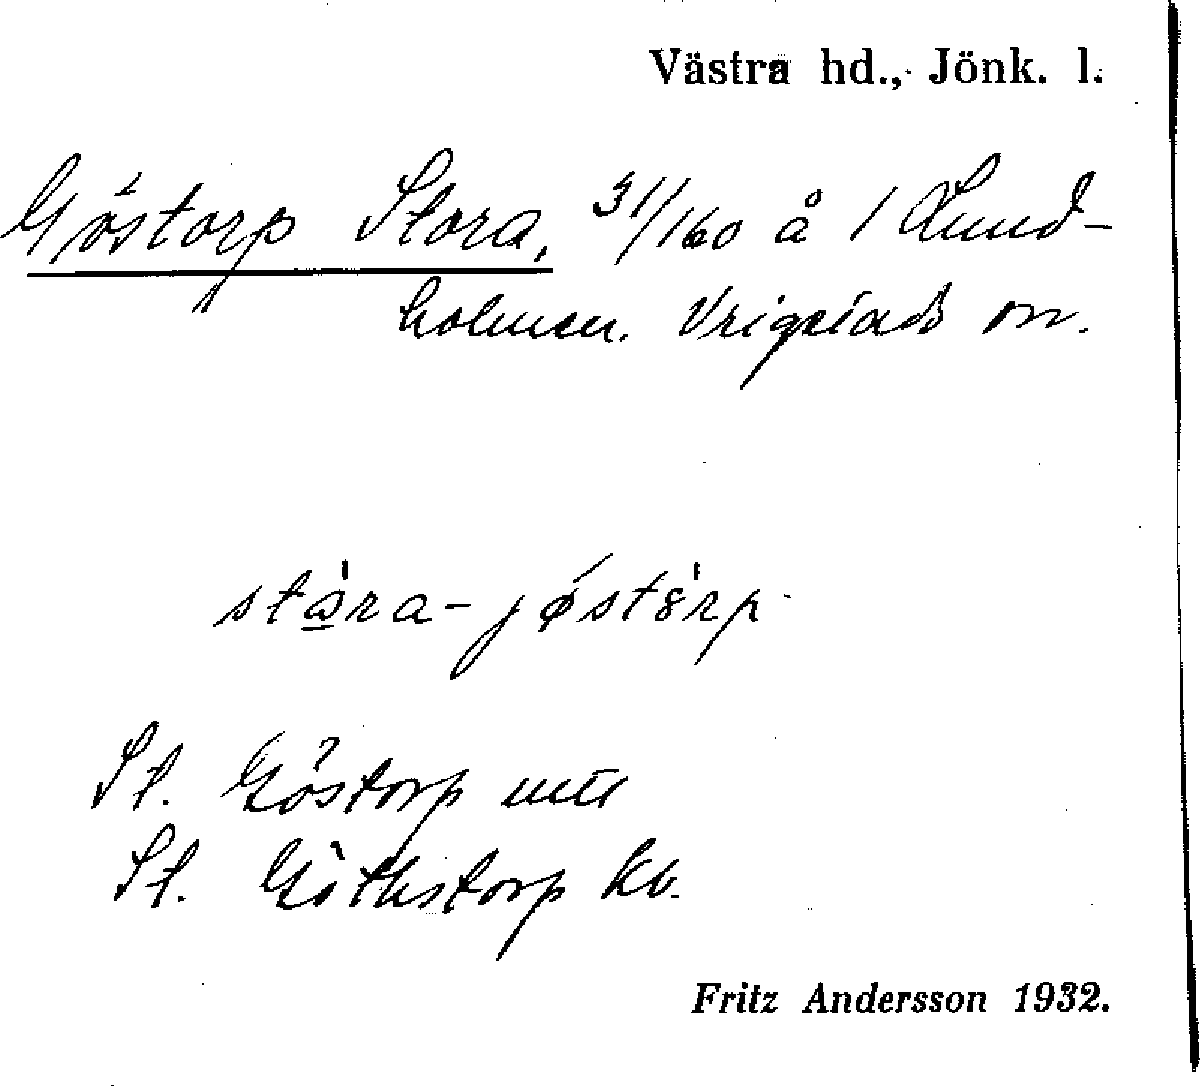 Västra hd., Jönk. l.
Göstorp Stora, 31/160 å 1 Lund-
holmen. Vrigstads sn.
stɷ̀ra-jǿstòrp
St. Göstorp
St. Göthstorp kb.
Fritz Andersson 1932.